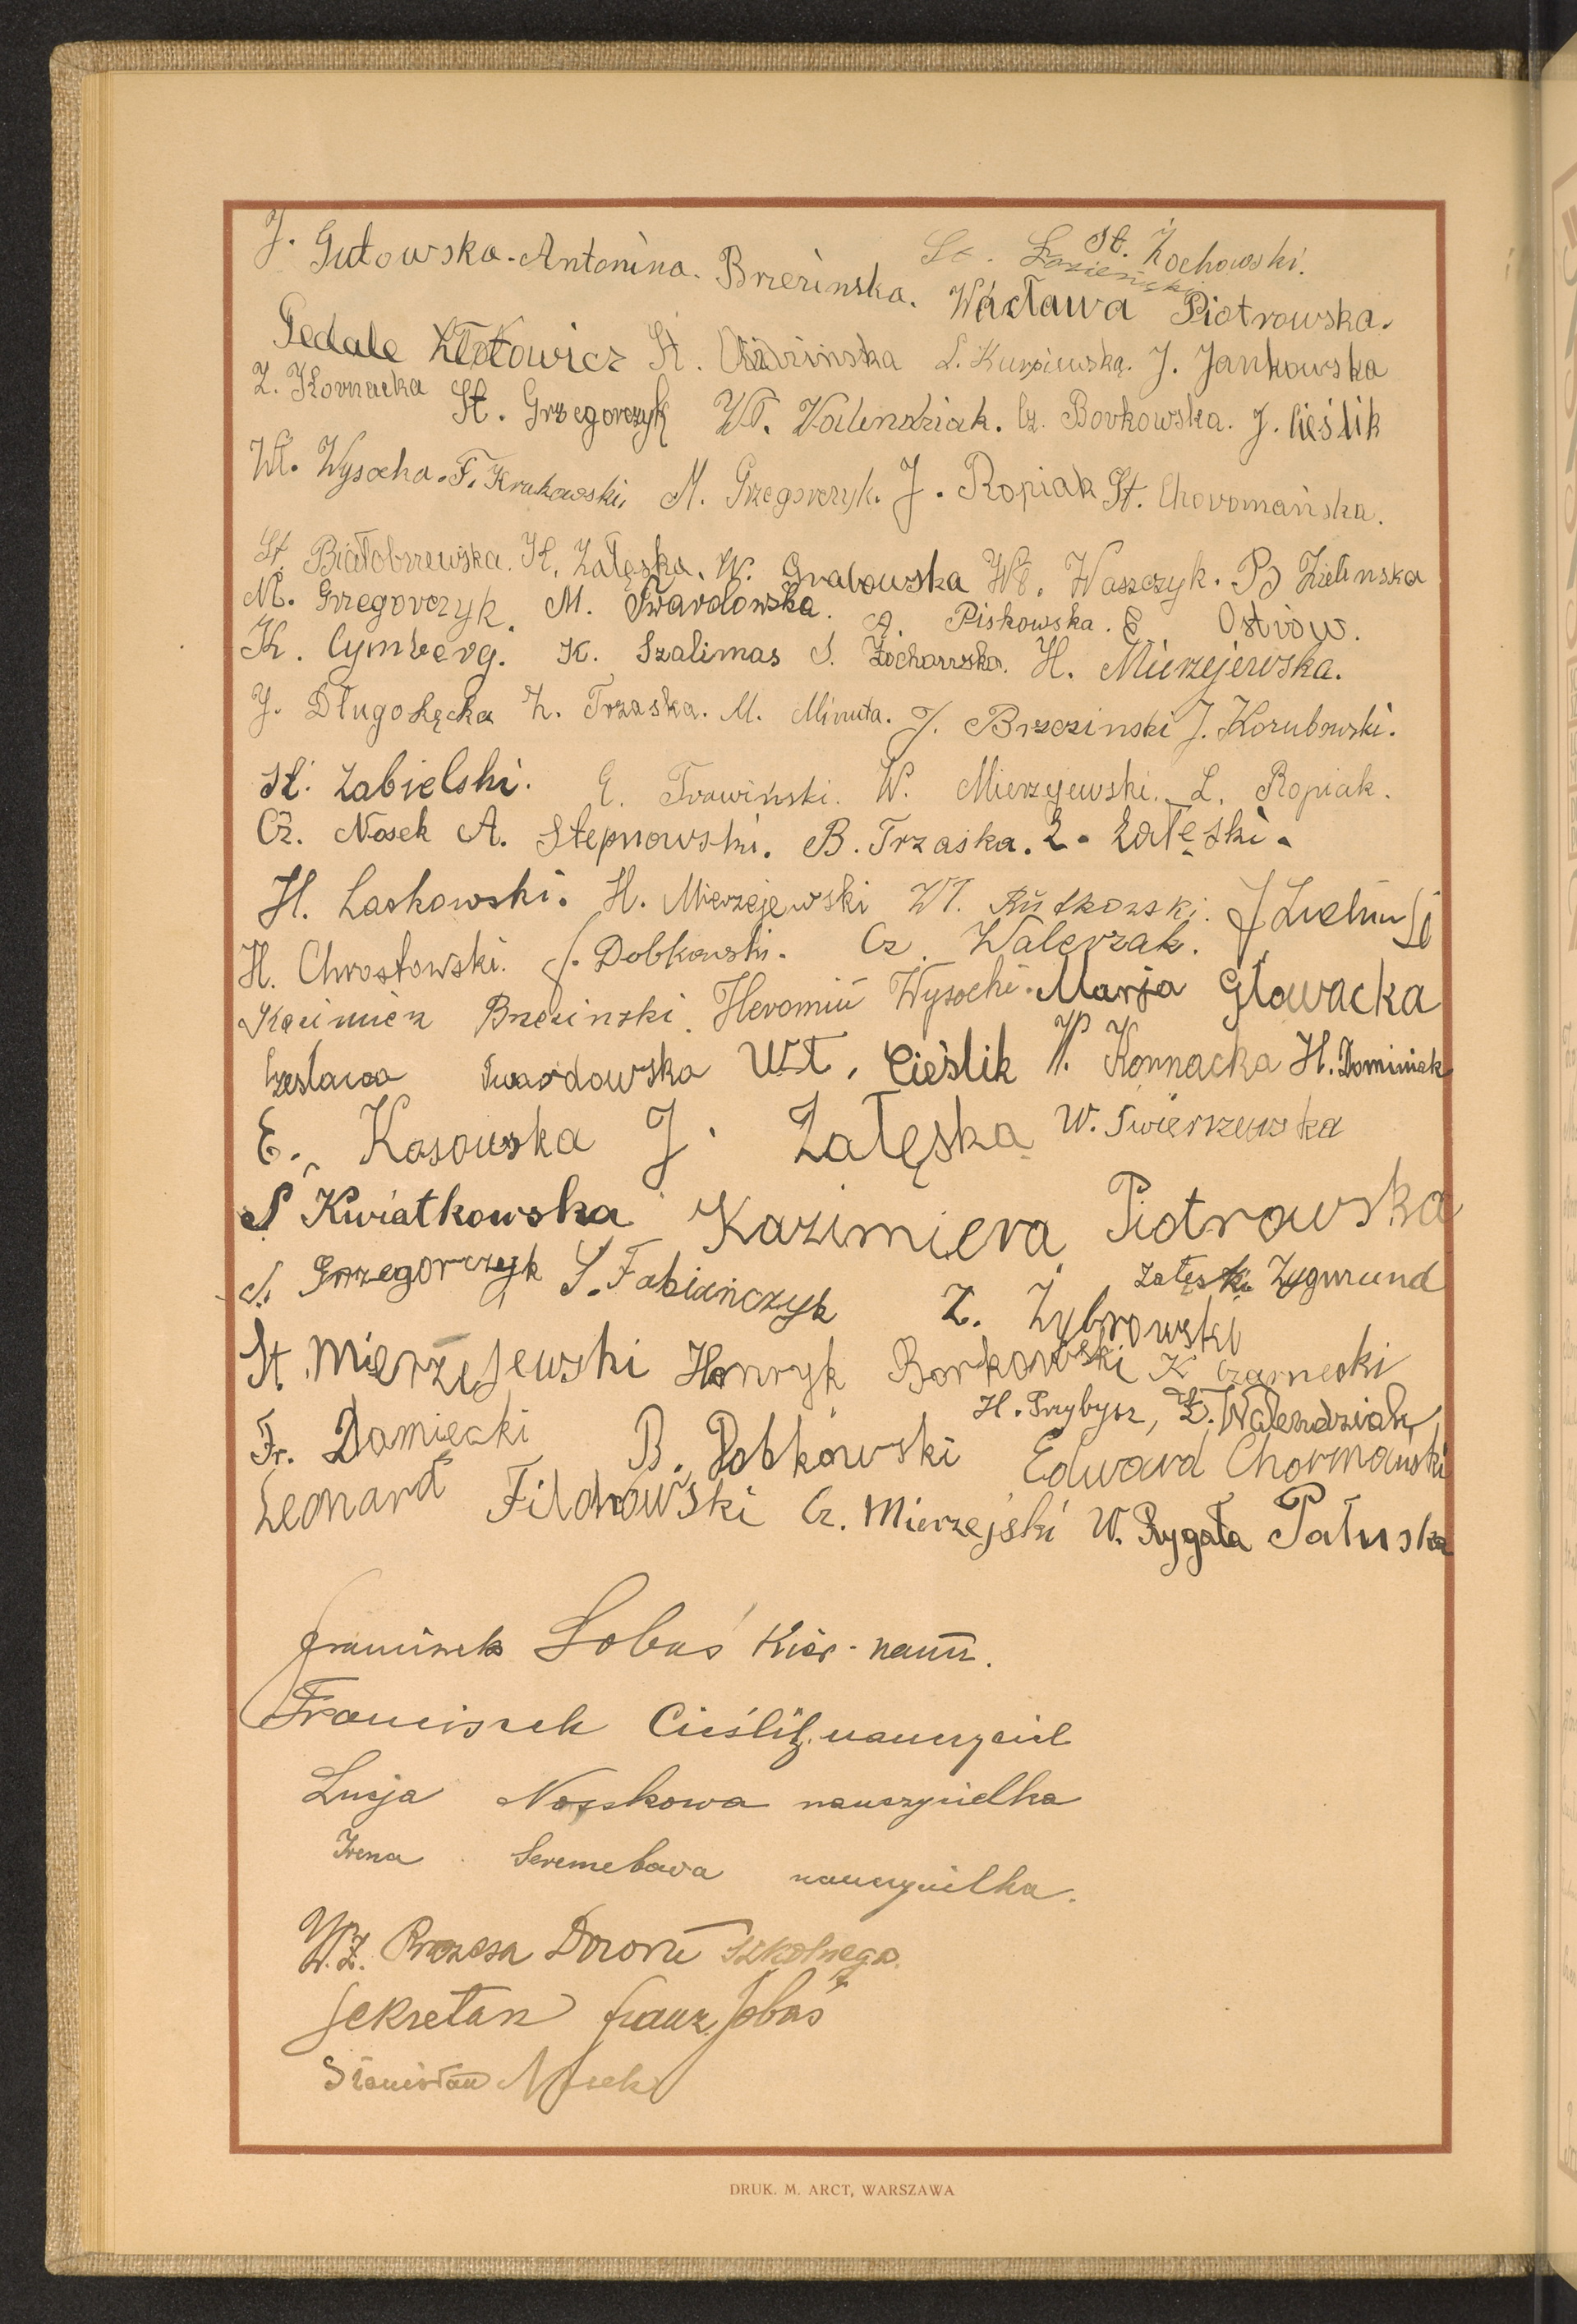 J. Gutowska. Antonina. Brzezinska. St. Łazieński St. Żochowski.
Wacława Piotrowska.
Gedale Złotowicz St. L. Kurpiewska. J. Jankowska
Z. Kornacka St. Grzegorczyk Wł. Walendziak. Cz. Borkowska. J. Cieślik
Wł. Wysocka. F. Krukowski, M. Grzegorczyk. J. Ropiak St. Choromańska.
St. Białobrzewska. H. Załęska. W. Grabowska Wł. Waszczyk. B Zielinska
M. Grzegorczyk. M. Twardowska. A. Piskowska. E Ostrów.
K. Cymberg. K. Szalimas S. H. Mierzejewska.
J. Długołęcka Z. Trzaska. M. Minuta. J. Brzezinski J. Korubowski.
St. Zabielski. E. Trawiński. W. Mierzejewski. L. Ropiak.
Cz. Nosek A. Stepnowski. B. Trzaska. Z. Załęski.
H. Laskowski. H. Mierzejewski Wł. Rutkowski. J Zieliński
H. Chrostowski. J. Dobkowski. Cz. Walerzak.
Kazimierz Brzezinski. Heromin Wysocki. Marja Głowacka
Czesława Twardowska Wł. Cieślik W. Kornacka H. Dominiak
E. Kosowska J. Załęska W. Swierzewska
S Kwiatkowska Kazimiera Piotrowska
S. Grzegorczyk S. Fabiańczyk Z. Żybrowski Załęski Zygmund
St. Mierzejewski Henryk Borkowski K Czarnecki
Fr. Damięcki B. Dobkowski H. Przybysz, Z. Walendziak,
Edward Chormański
Leonard Fildrowski Cz. Mierzejski W. Rygała Pałuska
Franciszek Sobaś Kier. naucz.
Franciszek Cieślik nauczyciel
Lucja Noskowa nauczycielka
Irena nauczycielka.
W.Z. Prezesa Dozoru Szkolnego.
Sekretarz Francz. Sobaś
Stanisław Nosek
DRUK. M. ARCT, WARSZAWA